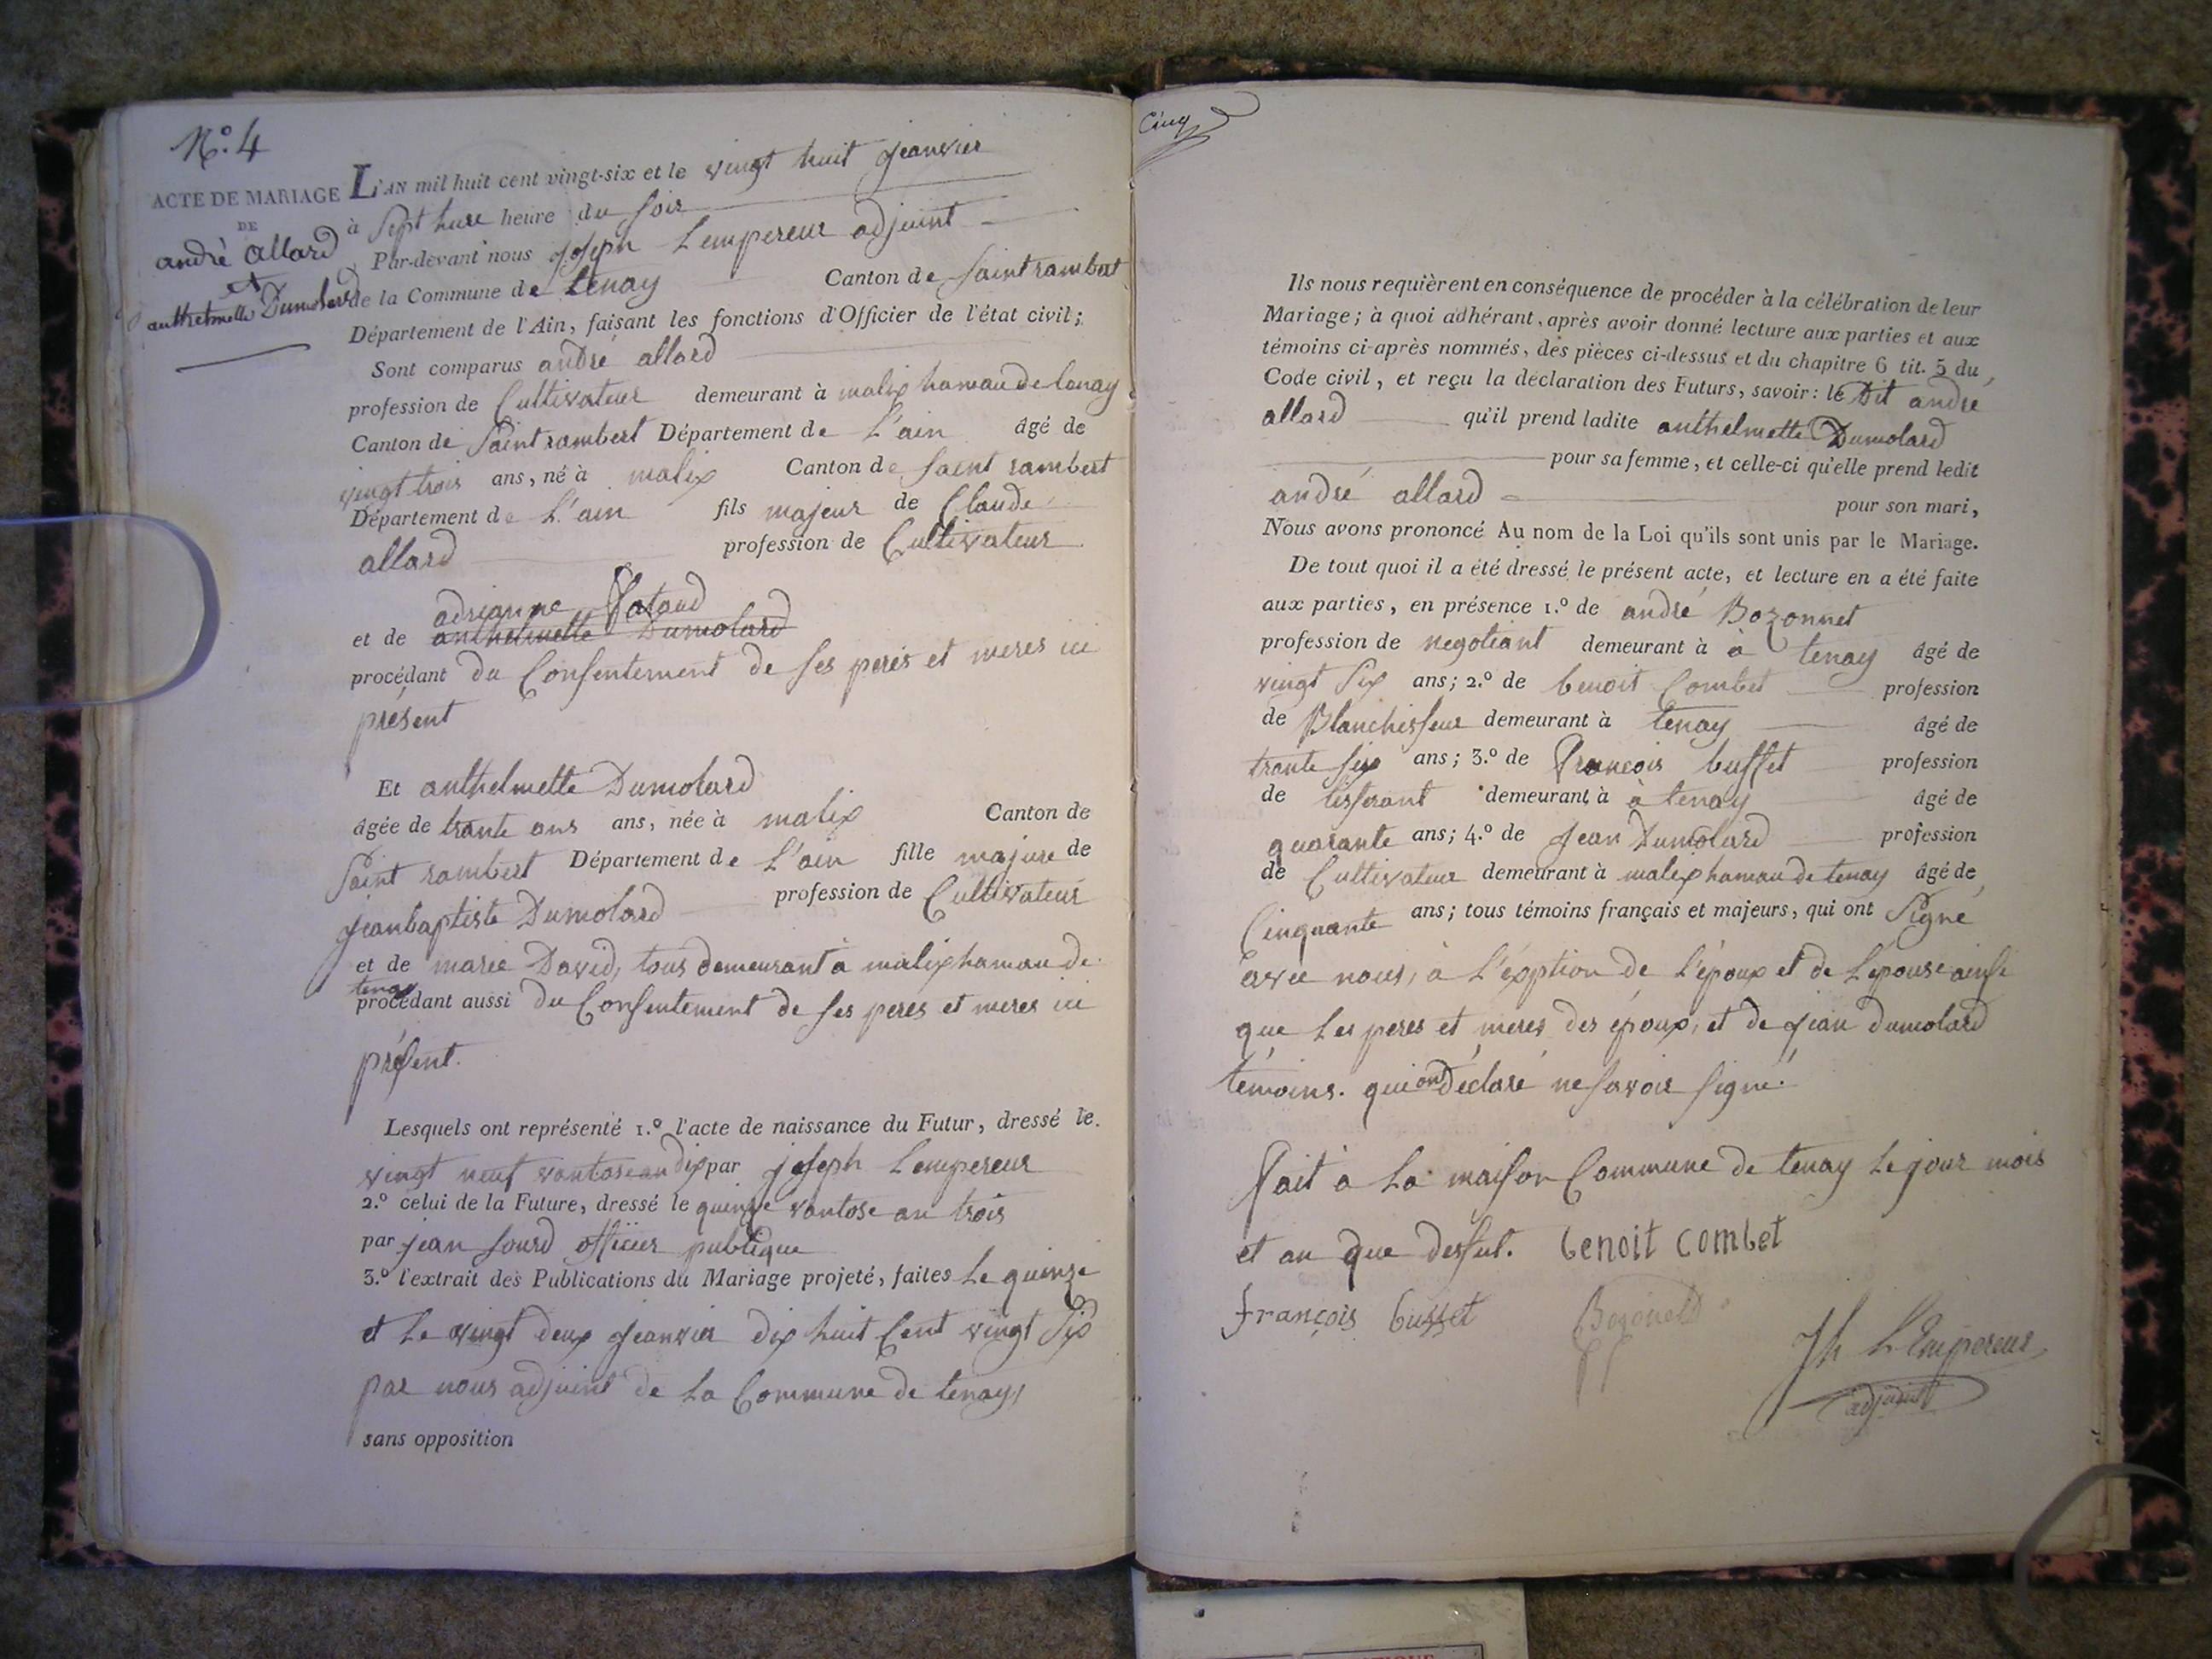 N.º 4
ACTE DE MARIAGE
DE
andré allard
et
anthelmette Dumolard
L'AN mil huit cent vingt-six et le vingt huit jeanvier
à Sept hure heure du soir
Par-devant nous joseph Lempereur adjoint
de la Commune de tenay Canton de saint rambert
Département de l'Ain, faisant les fonctions d'Officier de l'état civil;
Sont comparus andré allard
profession de Cultivateur demeurant à malix hamau de tenay
Canton de saint rambert Département de L'ain âgé de
vingt trois ans, né à malix Canton de saint rambert
Département de L'ain fils majeur de Claude
allard profession de Cultivateur
adrianne
et de anthelmette Dumolard
procédant du Consentement de ses peres et meres ici
présent
Et anthelmette Dumolard
âgée de trante ans ans, née à malix Canton de
saint rambert Département de L'ain fille majure de
jeanbaptiste Dumolard profession de Cultivateur
et de marie David, tous demeurant à malix hamau de
tenay
procédant aussi du Consentement de ses peres et meres ici
présent.
Lesquels ont représenté 1.º l'acte de naissance du Futur, dressé le
vingt neuf vantose an dix par joseph Lempereur
2.º celui de la Future, dressé le quinze vantose an trois
par jean sourd officier publique
3.º l'extrait des Publications du Mariage projeté, faites Le quinze
et Le vingt deux jeanvier dix huit Cent vingt six
par nous adjoint de La Commune de tenay,
sans opposition
Cinq
Ils nous requièrent en conséquence de procéder à la célébration de leur
Mariage; à quoi adhérant, après avoir donné lecture aux parties et aux
témoins ci-après nommés, des pièces ci-dessus et du chapitre 6 tit. 5 du
Code civil, et reçu la déclaration des Futurs, savoir: le Dit andré
allard qu'il prend ladite anthelmette Dumolard
pour sa femme, et celle-ci qu'elle prend ledit
andré allard pour son mari,
Nous avons prononcé Au nom de la Loi qu'ils sont unis par le Mariage.
De tout quoi il a été dressé le présent acte, et lecture en a été faite
aux parties, en présence 1.º de andré Bozonnet
profession de negotiant demeurant à à tenay âgé de
vingt six ans; 2.º de benoit Combet profession
de Blanchisseur demeurant à tenay âgé de
trante six ans; 3.º de François buffet profession
de tisserant demeurant à à tenay âgé de
quarante ans; 4.º de jean Dumolard profession
de Cultivateur demeurant à malix hamau de tenay âgé de
Cinquante ans; tous témoins français et majeurs, qui ont Signé
avec nous, à L'éxption de L'époux et de L'épouse ainsi
que Les peres et meres des époux, et de jean dumolard
témoins. qui ont déclaré ne savoir signé.
fait à La maison Commune de tenay Le jour mois
et an que dessut. benoit combet
françois buffet
Jh LEmpereur
adjoint